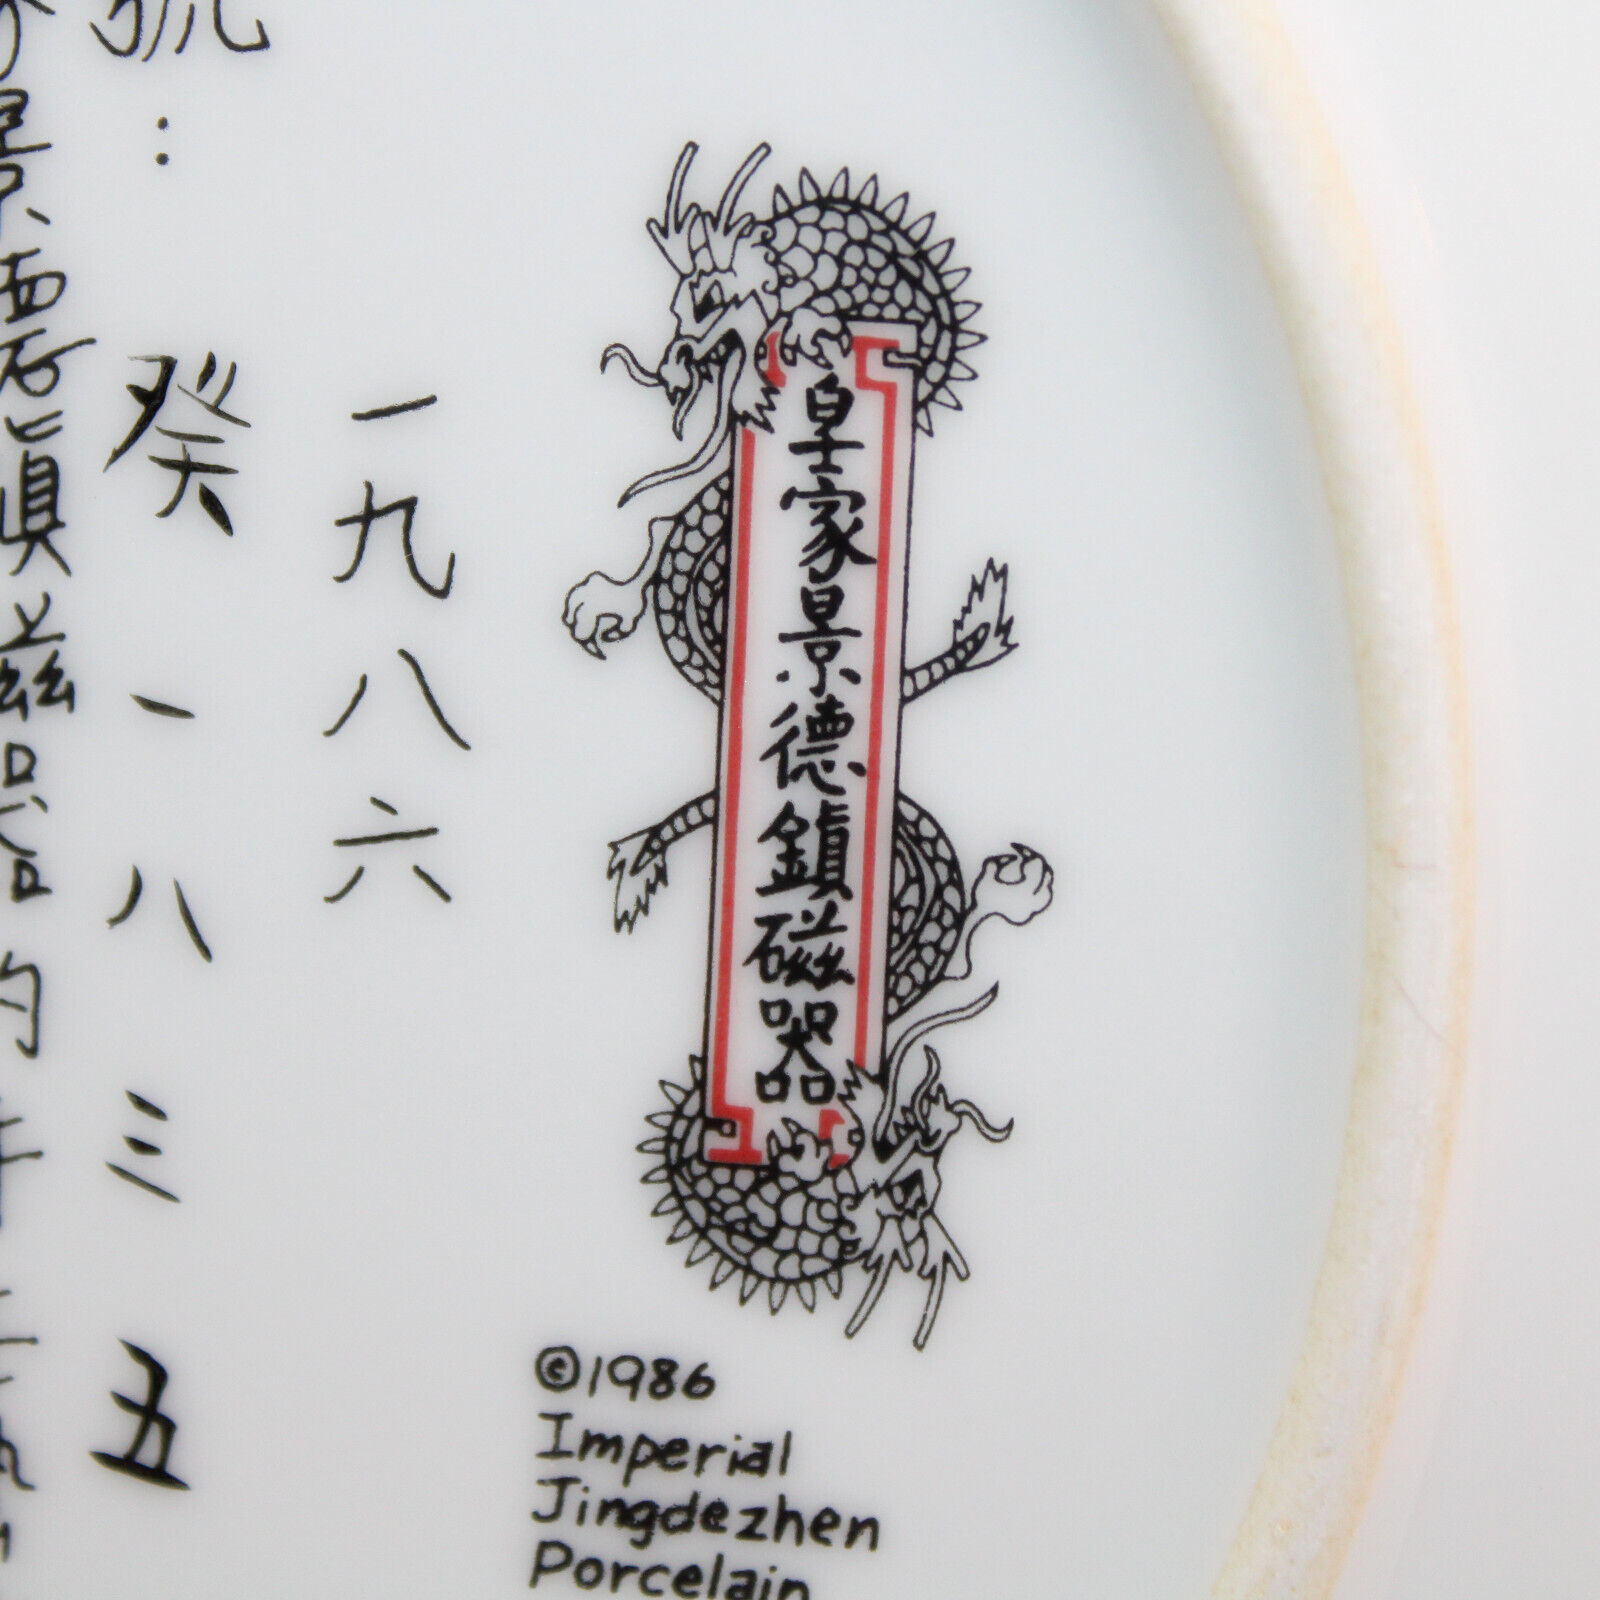 皇家景德鎮磁器
一九八六
號：癸一八三五
景
鎮磁器
的
©1986
Imperial
Jingdezhen
Porcelain